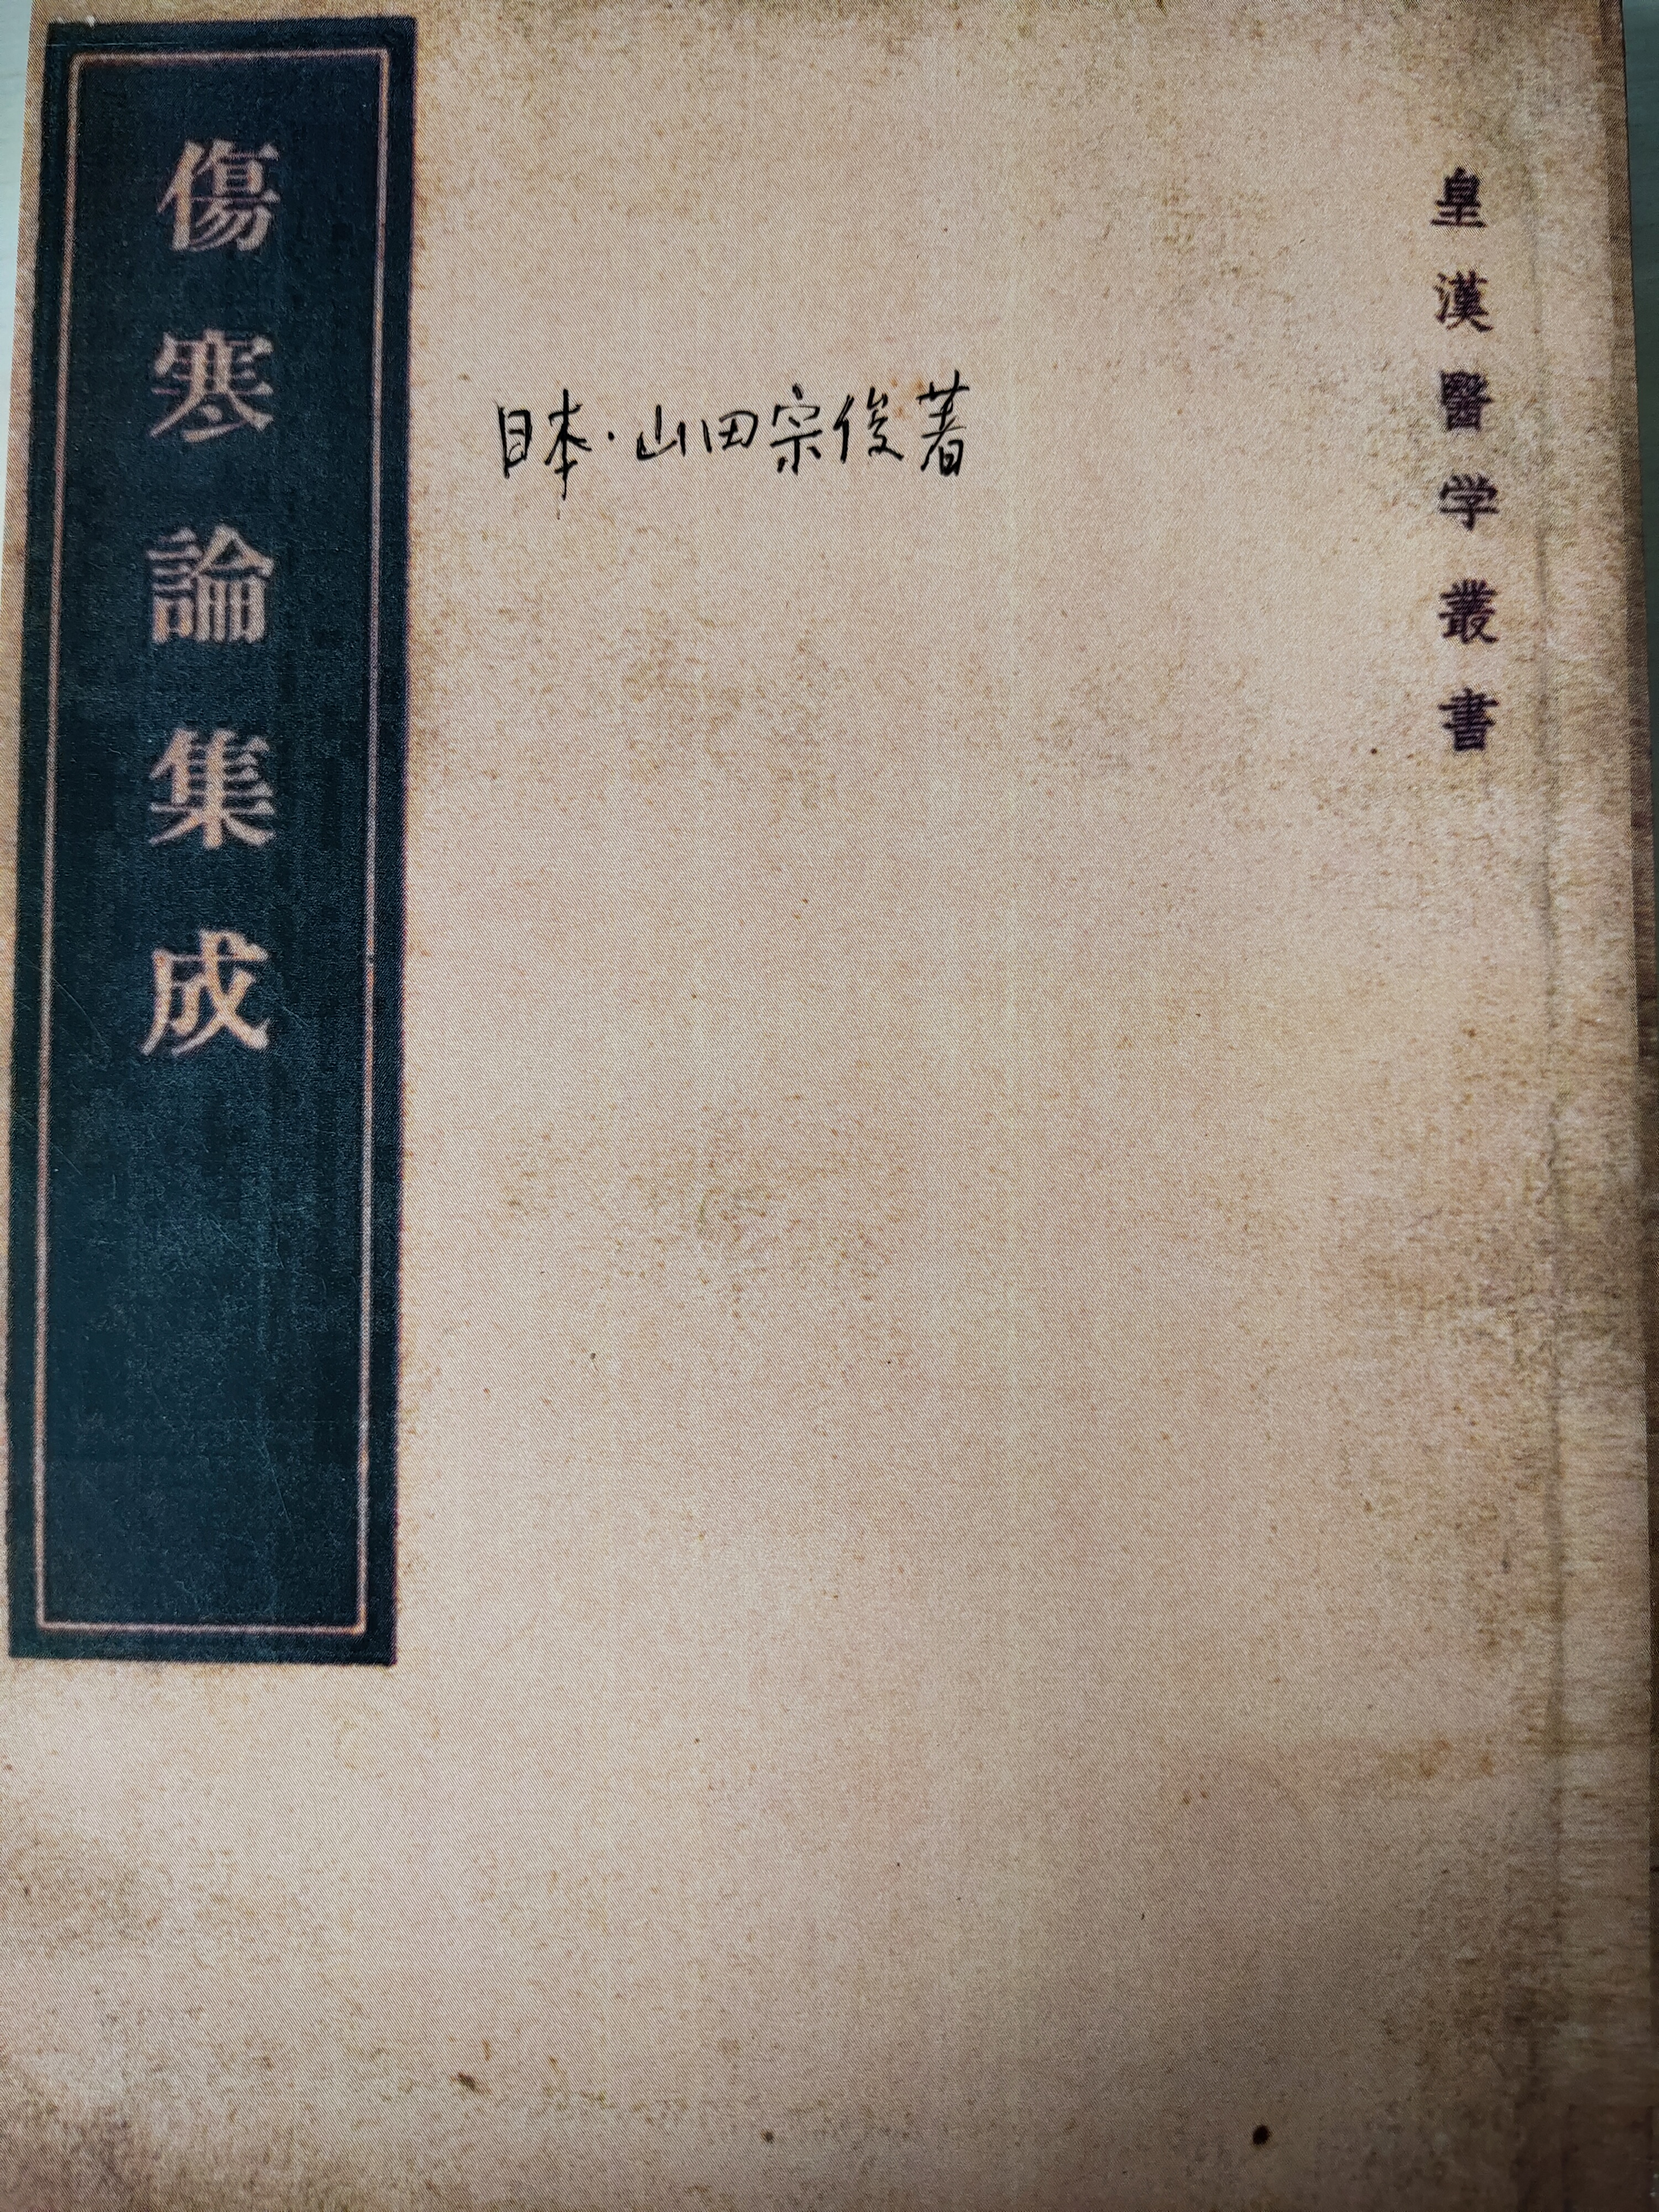 皇漢醫学叢書
日本·山田宗俊著
傷寒論集成